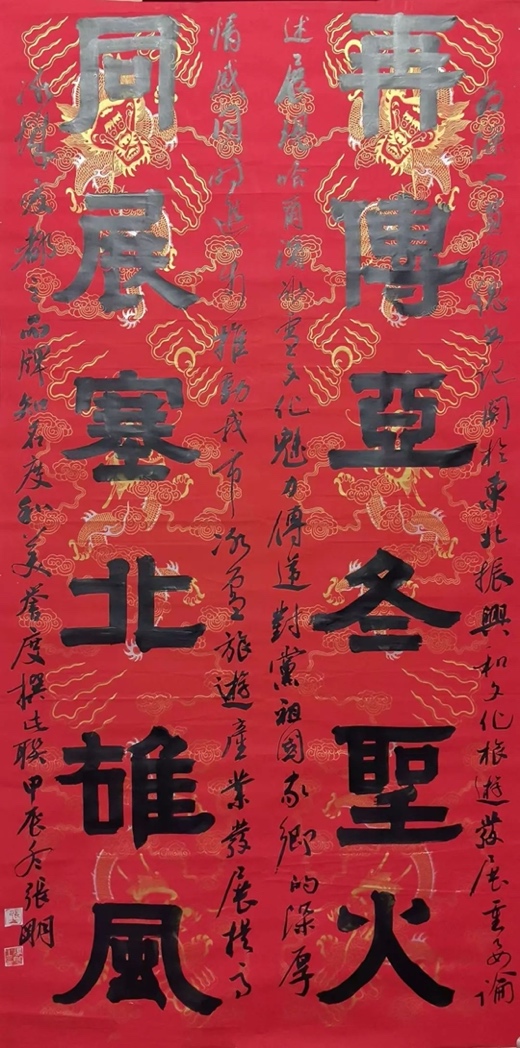 再傳亞冬聖火
述展現哈爾濱冰雪文化魅力傳達對黨祖國家鄉的深厚
關於東北振興和文化旅遊發展重要論
同展塞北雄風
情感同時進一步推動我市冰雪旅遊產業發展提高
都之品牌知名度和美譽度撰此聯甲辰冬張明